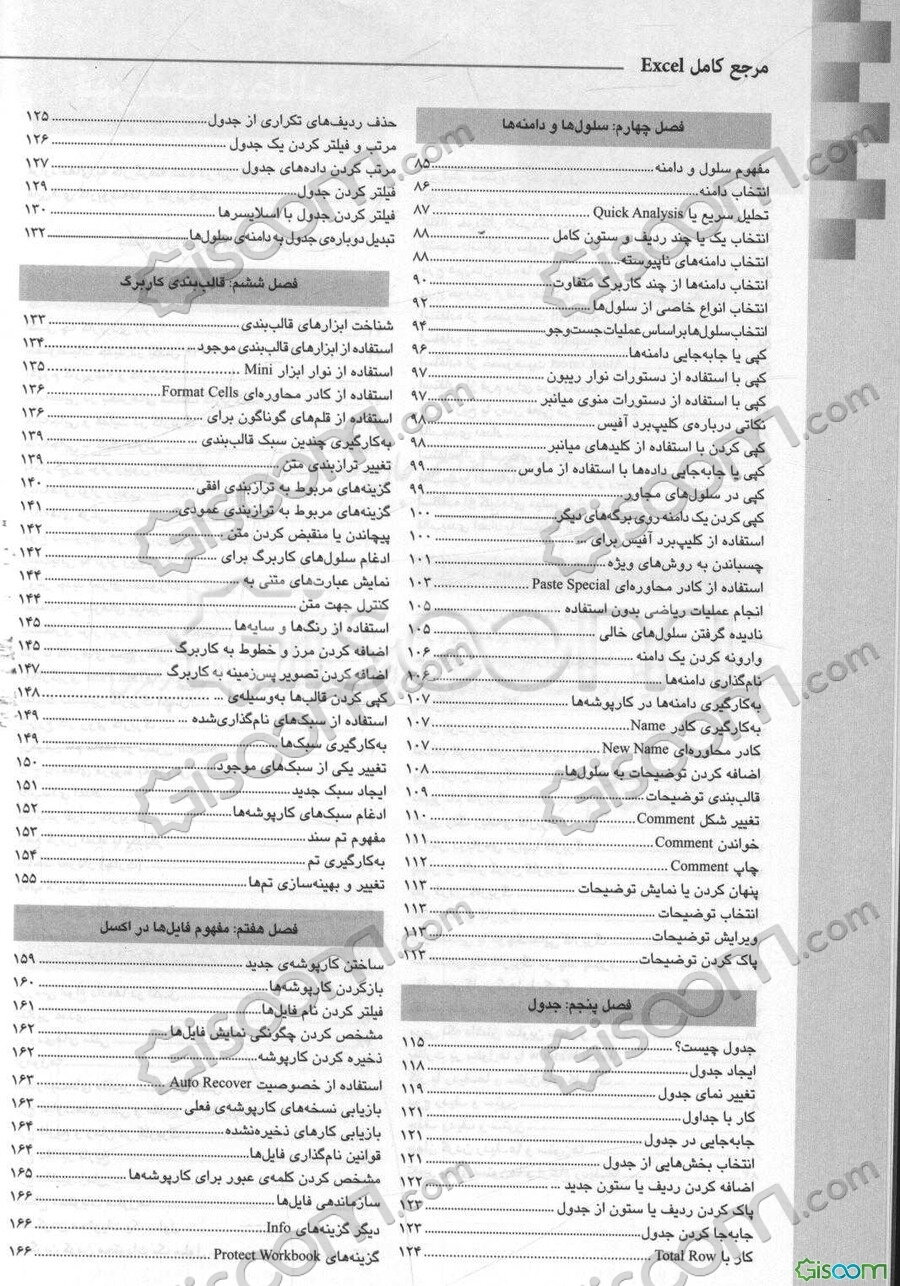 مرجع کامل Excel
فصل چهارم: سلول‌ها و دامنه‌ها
مفهوم سلول و دامنه ۸۵
انتخاب دامنه ۸۶
تحلیل سریع یا Quick Analysis ۸۷
انتخاب یک یا چند ردیف و ستون کامل ۸۸
انتخاب دامنه‌های ناپیوسته ۸۸
انتخاب دامنه‌ها از چند کاربرگ متفاوت ۹۰
انتخاب انواع خاصی از سلول‌ها ۹۲
انتخاب سلول‌ها براساس عملیات جست‌وجو ۹۴
کپی یا جابه‌جایی دامنه‌ها ۹۶
کپی با استفاده از دستورات نوار ریبون ۹۷
کپی با استفاده از دستورات منوی میانبر ۹۷
نکاتی درباره‌ی کلیپ‌برد آفیس ۹۸
کپی کردن با استفاده از کلیدهای میانبر ۹۸
کپی یا جابه‌جایی داده‌ها با استفاده از ماوس ۹۹
کپی در سلول‌های مجاور ۹۹
کپی کردن یک دامنه روی برگه‌های دیگر ۱۰۰
استفاده از کلیپ‌برد آفیس برای ... ۱۰۰
چسباندن به روش‌های ویژه ۱۰۱
استفاده از کادر محاوره‌ای Paste Special ۱۰۳
انجام عملیات ریاضی بدون استفاده ... ۱۰۵
نادیده گرفتن سلول‌های خالی ۱۰۵
وارونه کردن یک دامنه ۱۰۶
نام‌گذاری دامنه‌ها ۱۰۶
به‌کارگیری دامنه‌ها در کارپوشه‌ها ۱۰۷
به‌کارگیری کادر Name ۱۰۷
کادر محاوره‌ای New Name ۱۰۷
اضافه کردن توضیحات به سلول‌ها ۱۰۸
قالب‌بندی توضیحات ۱۰۹
تغییر شکل Comment ۱۱۰
خواندن Comment ۱۱۱
چاپ Comment ۱۱۲
پنهان کردن یا نمایش توضیحات ۱۱۳
انتخاب توضیحات ۱۱۳
ویرایش توضیحات ۱۱۳
پاک کردن توضیحات ۱۱۳
فصل پنجم: جدول
جدول چیست؟ ۱۱۵
ایجاد جدول ۱۱۸
تغییر نمای جدول ۱۱۹
کار با جداول ۱۲۱
جابه‌جایی در جدول ۱۲۱
انتخاب بخش‌هایی از جدول ۱۲۱
اضافه کردن ردیف یا ستون جدید ۱۲۲
پاک کردن ردیف یا ستون از جدول ۱۲۳
جابه‌جا کردن جدول ۱۲۳
کار با Total Row ۱۲۴
حذف ردیف‌های تکراری از جدول ۱۲۵
مرتب و فیلتر کردن یک جدول ۱۲۶
مرتب کردن داده‌های جدول ۱۲۷
فیلتر کردن جدول ۱۲۹
فیلتر کردن جدول با اسلایسرها ۱۳۰
تبدیل دوباره‌ی جدول به دامنه‌ی سلول‌ها ۱۳۲
فصل ششم: قالب‌بندی کاربرگ
شناخت ابزارهای قالب‌بندی ۱۳۳
استفاده از ابزارهای قالب‌بندی موجود ۱۳۴
استفاده از نوار ابزار Mini ۱۳۵
استفاده از کادر محاوره‌ای Format Cells ۱۳۶
استفاده از قلم‌های گوناگون برای ... ۱۳۶
به‌کارگیری چندین سبک قالب‌بندی ۱۳۹
تغییر ترازبندی متن ۱۳۹
گزینه‌های مربوط به ترازبندی افقی ۱۴۰
گزینه‌های مربوط به ترازبندی عمودی ۱۴۱
پیچاندن یا منقبض کردن متن ۱۴۲
ادغام سلول‌های کاربرگ برای ... ۱۴۲
نمایش عبارت‌های متنی به ... ۱۴۴
کنترل جهت متن ۱۴۴
استفاده از رنگ‌ها و سایه‌ها ۱۴۵
اضافه کردن مرز و خطوط به کاربرگ ۱۴۵
اضافه کردن تصویر پس‌زمینه به کاربرگ ۱۴۷
کپی کردن قالب‌ها به‌وسیله‌ی ... ۱۴۸
استفاده از سبک‌های نام‌گذاری‌شده ... ۱۴۹
به‌کارگیری سبک‌ها ۱۴۹
تغییر یکی از سبک‌های موجود ۱۵۰
ایجاد سبک جدید ۱۵۱
ادغام سبک‌های کارپوشه‌ها ۱۵۲
مفهوم تم سند ۱۵۳
به‌کارگیری تم ۱۵۴
تغییر و بهینه‌سازی تم‌ها ۱۵۵
فصل هفتم: مفهوم فایل‌ها در اکسل
ساختن کارپوشه‌ی جدید ۱۵۹
بازکردن کارپوشه‌ها ۱۶۰
فیلتر کردن نام فایل‌ها ۱۶۱
مشخص کردن چگونگی نمایش فایل‌ها ۱۶۲
ذخیره کردن کارپوشه ۱۶۲
استفاده از خصوصیت Auto Recover ۱۶۳
بازیابی نسخه‌های کارپوشه‌ی فعلی ۱۶۳
بازیابی کارهای ذخیره‌نشده ۱۶۴
قوانین نام‌گذاری فایل‌ها ۱۶۴
مشخص کردن کلمه‌ی عبور برای کارپوشه‌ها ۱۶۵
سازماندهی فایل‌ها ۱۶۶
دیگر گزینه‌های Info ۱۶۶
گزینه‌های Protect Workbook ۱۶۶
Gisoom
Gisoom.com